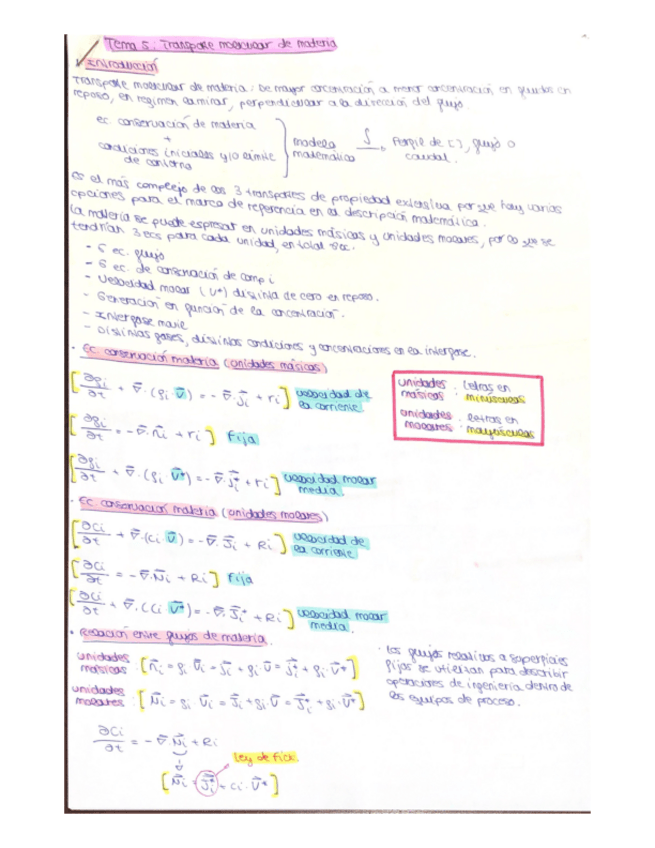 Tema 5: Transporte molecular de materia
Introducción
Transporte molecular de materia: De mayor concentración a menor concentración en fluidos en
reposo, en regimen laminar, perpendicular a la dirección del flujo.
ec. conservación de materia
+
condiciones iniciales y/o límite
de contorno
modelo
matemático
∫
Perfil de [ ], flujo o
caudal.
Es el más complejo de los 3 transportes de propiedad extensiva por que hay varias
opciones para el marco de referencia en la descripción matemática.
La materia se puede expresar en unidades másicas y unidades molares, por lo que se
tendrían 3 ecs para cada unidad, en total
- 6 ec. flujo
- 6 ec. de conservación de comp i
- Velocidad molar (v*) distinta de cero en reposo.
- Generación en función de la concentración.
- Interfase
- Distintas fases, distintas condiciones y concentraciones en la interfase.
· Ec. conservación materia (unidades másicas)
[∂ρi/∂t + ∇·(ρi v) = -∇·ji + ri] velocidad de
la corriente
[∂ρi/∂t = -∇·ni + ri] Fija
[∂ρi/∂t + ∇·(ρi v*) = -∇·ji* + ri] velocidad molar
media
unidades másicas : Letras en minúsculas
unidades molares : Letras en mayúsculas
· Ec conservación materia (unidades molares)
[∂Ci/∂t + ∇·(Ci v) = -∇·Ji + Ri] velocidad de
la corriente
[∂Ci/∂t = -∇·Ni + Ri] Fija
[∂Ci/∂t + ∇·(Ci v*) = -∇·Ji* + Ri] velocidad molar
media.
· Relación entre flujos de materia.
unidades másicas : [ni = ρi vi = ji + ρi·v = ji* + ρi·v*]
unidades molares : [Ni = ρi vi = Ji + ρi·v = Ji* + ρi·v*]
· Los flujos relativos a superficies
fijas se utilizan para describir
operaciones de ingeniería dentro de
los equipos de proceso.
∂Ci/∂t = -∇·Ni + Ri
Ley de Fick.
[Ni = Ji* + Ci·v*]